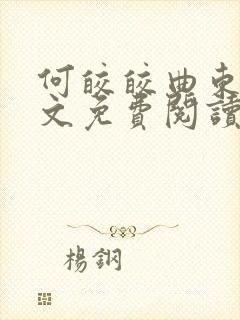 何皎皎曲東
文免費閱讀
楊鋼